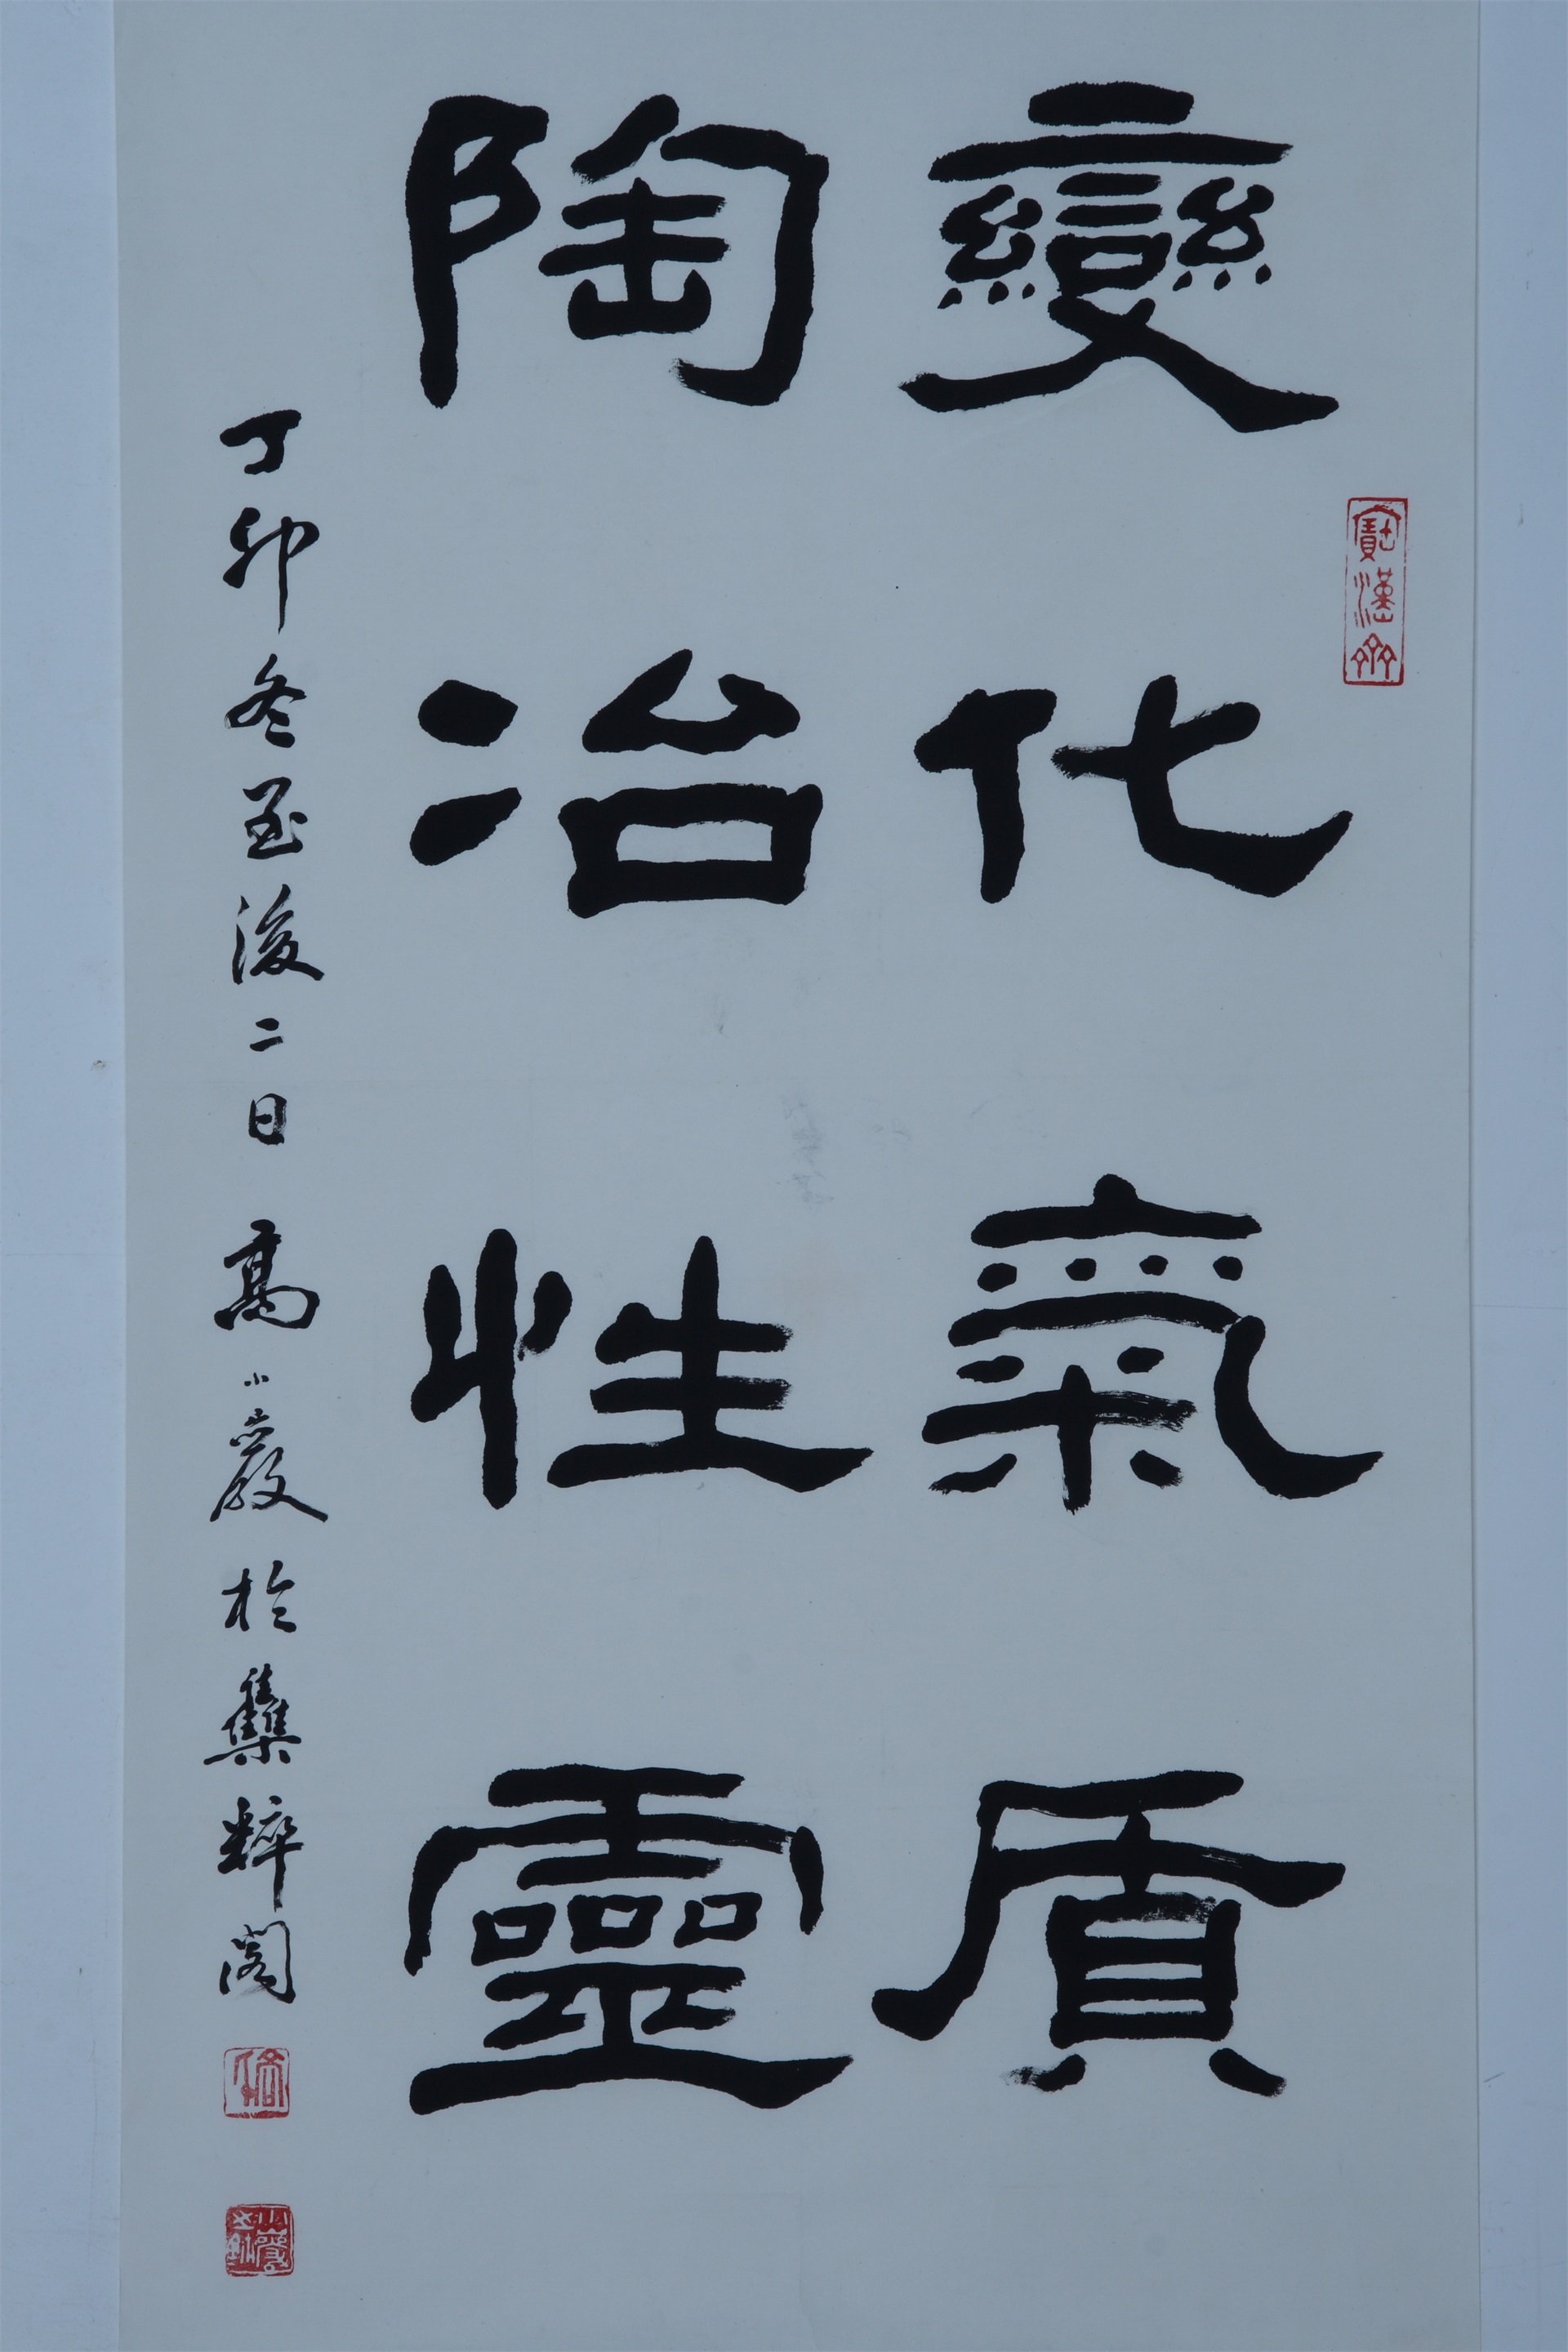 變化氣質
陶冶性靈
丁卯冬至後二日 高小巖於集粹閣
寶漢齋